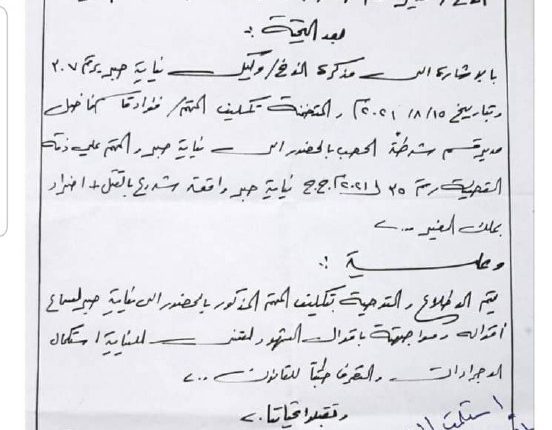 بعد التحية :-
بالإشارة الى مذكرة الأخ/ وكيل نيابة صبر برقم ٢٠٧
وتاريخ ١٥/ ٨/ ٢٠٢١م والمتضمنة تكليف المتهم/ فؤاد قائد فاضل
مدير قسم شرطة الحصب بالحضور الى نيابة صبر والمتهم على ذمة
القضية رقم ٣٥ ل ٢٠٢١م ج.ج نيابة صبر واقعة شروع بالقتل + اضرار
بملك الغير ..،
وعليه :-
يتم الاطلاع والتوجيه بتكليف المتهم المذكور بالحضور الى نيابة صبر لسماع
أقواله ومواجهته بأقوال الشهود ليتسنى للنيابة استكمال
الاجراءات والتصرف طبقاً للقانون ..،
وتقبلوا تحياتنا ..،
استلمت